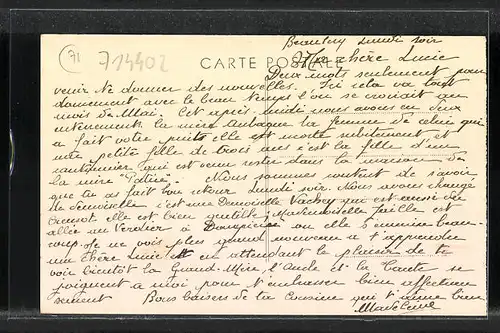 71 714402
CARTE POSTALE
Beaubery Lundi soir
Ma chère Lucie
Deux mots seulement pour
venir te donner des nouvelles. Ici cela va tout
doucement avec le beau temps l'on se croirait au
mois de Mai. Cet après midi nous avons eu deux
enterrements la mère la femme de celui qui
a fait votre puits elle est morte subitement et
une petite fille de trois ans c'est la fille d'un
cantonnier qui est venu rester dans la maison de
la mère. Nous sommes content de savoir
que tu as fait bon retour Lundi soir. Nous avons changé
de demoiselle c'est une Demoiselle Vachey qui est aussi du
Creusot elle est bien gentille, Mademoiselle est
allée au Verdier à Dompierre ou elle s'ennuie beau-
coup. Je ne vois plus grand nouveau à t'apprendre
ma chère Lucie en attendant le plaisir de te
voir bientôt la Grand-Mère, l'Oncle et la Tante se
joignent à moi pour t'embrasser bien affectueu
sement Bons baisers de ta Cousine qui t'aime bien
Madeleine